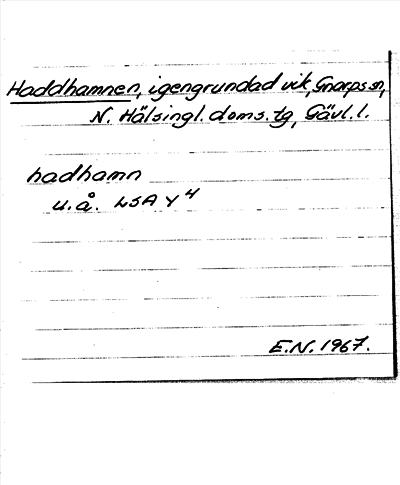 Haddhamnen, igengrundad vik, Gnarps sn,
N. Hälsingl. doms. tg, Gävl. l.
hadhamn
u.å. LSA Y 4
E.N. 1967.